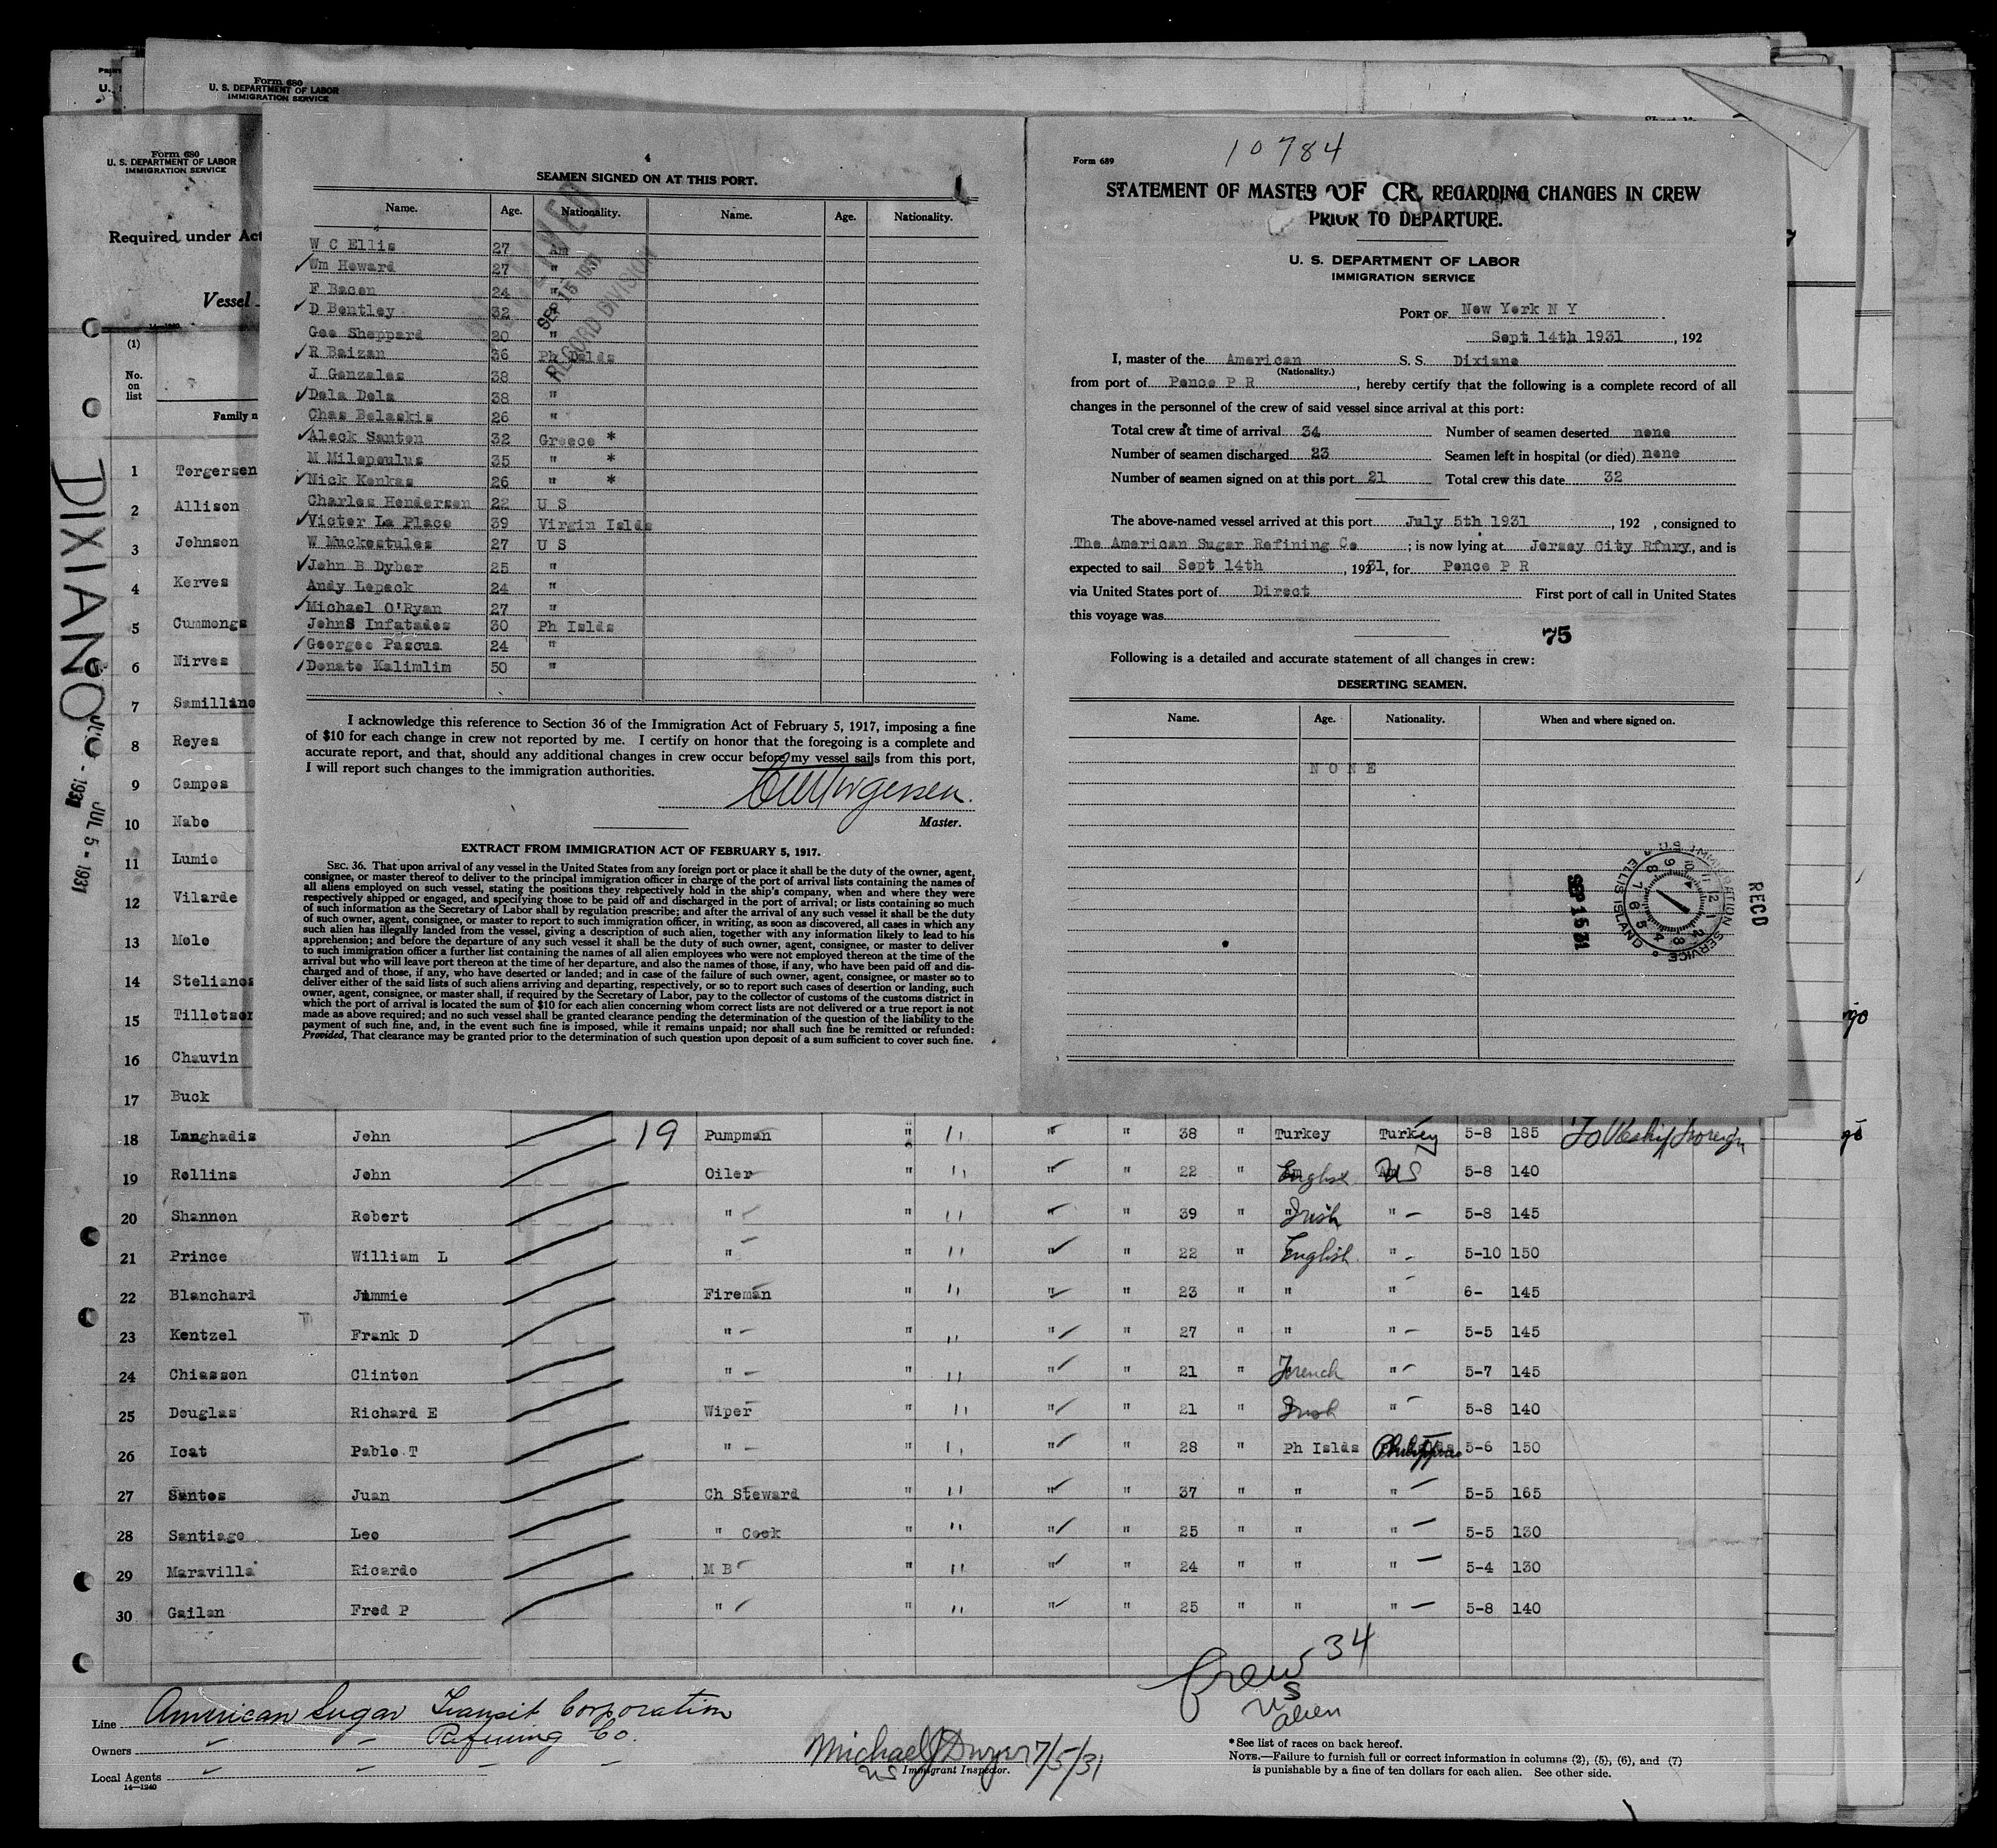 Form 680
U. S. DEPARTMENT OF LABOR
IMMIGRATION SERVICE
Form 680
U. S. DEPARTMENT OF LABOR
IMMIGRATION SERVICE
Required under Act
Vessel
14-1240
(1)
No. on list
Family n
DIXIANO
JUL 5 - 1931
1 Torgersen
2 Allison
3 Johnson
4 Kerves
5 Cummongs
6 Nirves
7 Samillano
8 Reyes
9 Campos
10 Nabo
11 Lumio
12 Vilarde
13 Molo
14 Stelianos
15 Tilletson
16 Chauvin
17 Buck
4
SEAMEN SIGNED ON AT THIS PORT.
1
Name. Age. Nationality. Name. Age. Nationality.
W C Ellis 27 Am
Wm Howard 27 "
F Bacon 24 "
D Bentley 32 "
Geo Sheppard 20 "
R Baizan 36 Ph Islds
J Gonzales 38 "
Dela Dela 38 "
Chas Belaskis 26 "
Aleck Santon 32 Greece *
M Milopoulus 35 " *
Nick Konkas 26 " *
Charles Henderson 22 U S
Victor La Place 39 Virgin Islds
W Muckostules 27 U S
John B Dyber 25 "
Andy Lopack 24 "
Michael O'Ryan 27 "
JohnS Infatados 30 Ph Islds
Georgeo Pascua 24 "
Donato Kalimlim 50 "
SEP 15 1931
RECORD DIVISION
I acknowledge this reference to Section 36 of the Immigration Act of February 5, 1917, imposing a fine
of $10 for each change in crew not reported by me. I certify on honor that the foregoing is a complete and
accurate report, and that, should any additional changes in crew occur before my vessel sails from this port,
I will report such changes to the immigration authorities.
Master.
EXTRACT FROM IMMIGRATION ACT OF FEBRUARY 5, 1917.
SEC. 36. That upon arrival of any vessel in the United States from any foreign port or place it shall be the duty of the owner, agent,
consignee, or master thereof to deliver to the principal immigration officer in charge of the port of arrival lists containing the names of
all aliens employed on such vessel, stating the positions they respectively hold in the ship's company, when and where they were
respectively shipped or engaged, and specifying those to be paid off and discharged in the port of arrival; or lists containing so much
of such information as the Secretary of Labor shall by regulation prescribe; and after the arrival of any such vessel it shall be the duty
of such owner, agent, consignee, or master to report to such immigration officer, in writing, as soon as discovered, all cases in which any
such alien has illegally landed from the vessel, giving a description of such alien, together with any information likely to lead to his
apprehension; and before the departure of any such vessel it shall be the duty of such owner, agent, consignee, or master to deliver
to such immigration officer a further list containing the names of all alien employees who were not employed thereon at the time of the
arrival but who will leave port thereon at the time of her departure, and also the names of those, if any, who have been paid off and dis-
charged and of those, if any, who have deserted or landed; and in case of the failure of such owner, agent, consignee, or master so to
deliver either of the said lists of such aliens arriving and departing, respectively, or so to report such cases of desertion or landing, such
owner, agent, consignee, or master shall, if required by the Secretary of Labor, pay to the collector of customs of the customs district in
which the port of arrival is located the sum of $10 for each alien concerning whom correct lists are not delivered or a true report is not
made as above required; and no such vessel shall be granted clearance pending the determination of the question of the liability to the
payment of such fine, and, in the event such fine is imposed, while it remains unpaid; nor shall such fine be remitted or refunded:
Provided, That clearance may be granted prior to the determination of such question upon deposit of a sum sufficient to cover such fine.
Form 689
10784
STATEMENT OF MASTER OF CR REGARDING CHANGES IN CREW
PRIOR TO DEPARTURE.
U. S. DEPARTMENT OF LABOR
IMMIGRATION SERVICE
PORT OF New York N Y
Sept 14th 1931, 192
I, master of the American S. S. Dixiano
(Nationality.)
from port of Ponce P R, hereby certify that the following is a complete record of all
changes in the personnel of the crew of said vessel since arrival at this port:
Total crew at time of arrival 34 Number of seamen deserted none
Number of seamen discharged 23 Seamen left in hospital (or died) none
Number of seamen signed on at this port 21 Total crew this date 32
The above-named vessel arrived at this port July 5th 1931, 192 , consigned to
The American Sugar Refining Co ; is now lying at Jersey City Rfnry, and is
expected to sail Sept 14th, 1931, for Ponce P R
via United States port of Direct First port of call in United States
this voyage was
75
Following is a detailed and accurate statement of all changes in crew:
DESERTING SEAMEN.
Name. Age. Nationality. When and where signed on.
NONE
RECD
SEP 15 31
IMMIGRATION SERVICE
ELLIS ISLAND
18 Langhadis John 19 Pumpman " " " " 38 " Turkey Turkey 5-8 185
19 Rollins John Oiler " " " " 22 " English US 5-8 140
20 Shannon Robert " " " " " 39 " Irish " 5-8 145
21 Prince William L " " " " " 22 " English " 5-10 150
22 Blanchard Jimmie Fireman " " " " 23 " " " 6- 145
23 Kentzel Frank D " " " " " 27 " " " 5-5 145
24 Chiasson Clinton " " " " " 21 " French " 5-7 145
25 Douglas Richard E Wiper " " " " 21 " Irish " 5-8 140
26 Icat Pablo T " " " " " 28 " Ph Islds Philippine 5-6 150
27 Santos Juan Ch Steward " " " " 37 " " " 5-5 165
28 Santiago Leo " Cook " " " " 25 " " " 5-5 130
29 Maravilla Ricardo M B " " " " 24 " " " 5-4 130
30 Gailan Fred P " " " " " 25 " " " 5-8 140
Crew 34
US
alien
Line American Sugar Transit Corporation
Owners " " Refining Co.
Local Agents " " " "
14-1240
Michael J Dwyer 7/5/31
US Immigrant Inspector.
*See list of races on back hereof.
NOTE.—Failure to furnish full or correct information in columns (2), (5), (6), and (7)
is punishable by a fine of ten dollars for each alien. See other side.